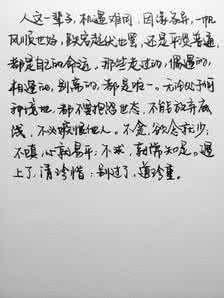 人这一辈子，机遇难测，因缘各异，一帆
风顺也好，跌宕起伏也罢，还是平淡普通，
都是自己的命运。那些走过的，偶遇的，
相遇的，别离的，都是唯一。无论处于何
种境地，都不要抱怨世态，不能放弃底
线，不必疑恨他人。不贪，欲念就少；
不嗔，心就易平；不求，就常知足。遇
上了，请珍惜；别过了，道珍重。